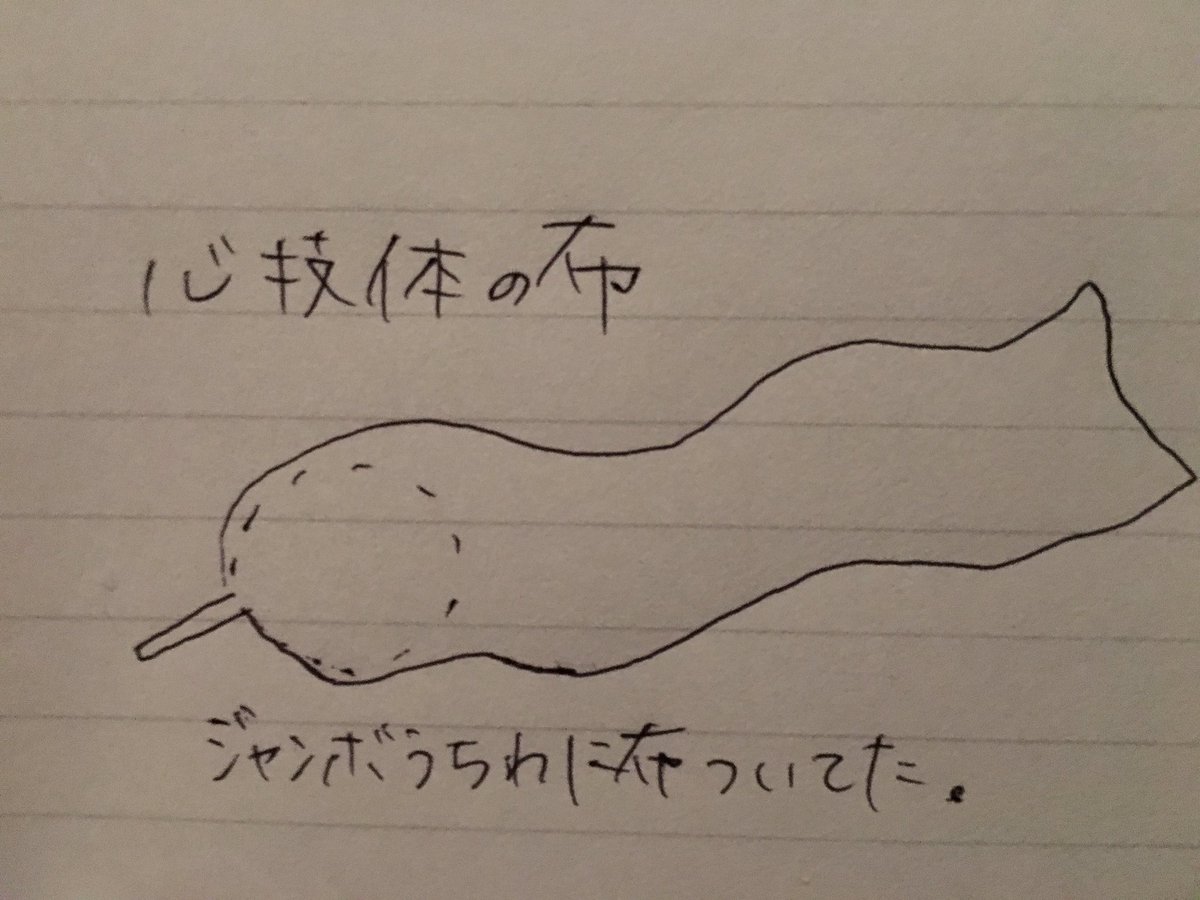 心技体の布
ジャンボうちわに布ついてた.